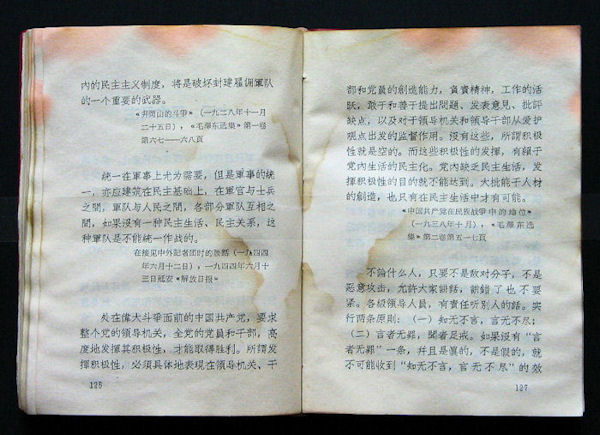 內的民主主义制度，将是破坏封建雇佣軍队
的一个重要的武器。
《井岡山的斗爭》（一九二八年十一月
二十五日），《毛澤东选集》第一卷
第六七——六八頁
統一在軍事上尤为需要，但是軍事的統
一，亦应建筑在民主基础上，在軍官与士兵之
間，軍队与人民之間，各部分軍队互相之
間，如果沒有一种民主生活、民主关系，这
种軍队是不能統一作战的。
在接見中外記者团时的談話（一九四四
年六月十二日），一九四四年六月十
三日延安《解放日报》
处在偉大斗爭面前的中国共产党，要求
整个党的领导机关，全党的党員和干部，高
度地发揮其积極性，才能取得胜利。所謂发
揮积極性，必須具体地表現在领导机关、干
126
部和党員的創造能力，負責精神，工作的活
跃，敢于和善于提出問題、发表意見、批評
缺点，以及对于领导机关和领导干部从爱护
观点出发的监督作用。沒有这些，所謂积極
性就是空的。而这些积極性的发揮，有賴于
党內生活的民主化。党內缺乏民主生活，发
揮积極性的目的就不能达到。大批能干人材
的創造，也只有在民主生活中才有可能。
《中国共产党在民族战爭中的地位》
（一九三八年十月），《毛澤东选
集》第二卷第五一七頁
不論什么人，只要不是敌对分子，不是
恶意攻击，允許大家讲話，讲錯了也不要
紧。各級领导人員，有責任听別人的話。实
行两条原則：（一）知无不言，言无不尽；
（二）言者无罪，聞者足戒。如果沒有“言
者无罪”一条，并且是真的，不是假的，就
不可能收到“知无不言，言无不尽”的效
127